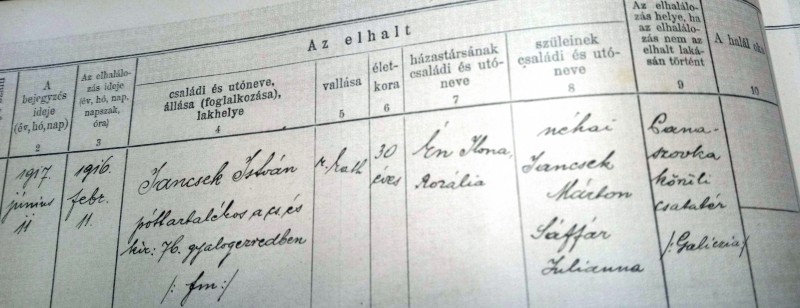 Az elhalt
A
bejegyzés
ideje
(év, hó, nap)
Az elhalálo-
zás ideje
(év, hó, nap,
napszak,
óra)
családi és utóneve,
állása (foglalkozása),
lakhelye
vallása
élet-
kora
házastársának
családi és utó-
neve
szüleinek
családi és utó-
neve
Az elhalálo-
zás helye, ha
az elhalálo-
zás nem az
elhalt laká-
sán történt
A halál oka
2
3
4
5
6
7
8
9
10
1917.
június
11
1916.
febr.
11.
Jancsek István
póttartalékos a cs. és
kir: 76. gyalogezredben
/: fm :/
r. kath
30
éves
Én Ilona,
Rozália
néhai
Jancsek
Márton
Sáffár
Julianna
szovka
körüli
csatatér
/:Galiczia/